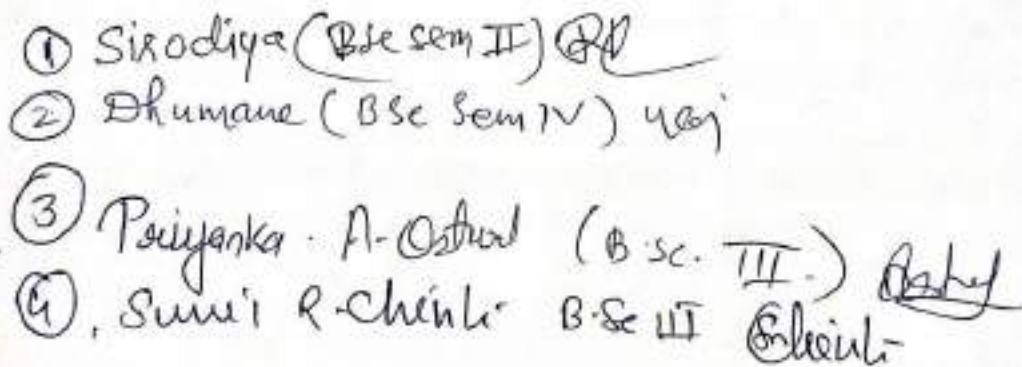 ① Sirodiya (BSc sem II)
② Dhumane (BSc Sem IV)
③ Priyanka . A. Ostwal (B.sc. III.)
④. R. B.Sc III